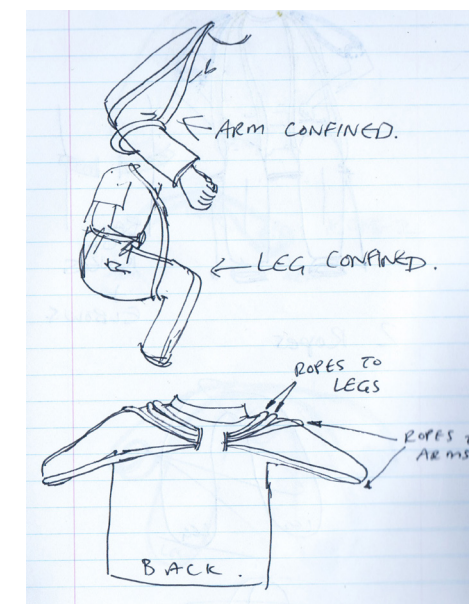 ARM CONFINED.
LEG CONFINED.
ROPES TO
LEGS
ROPES
ARMS
BACK.